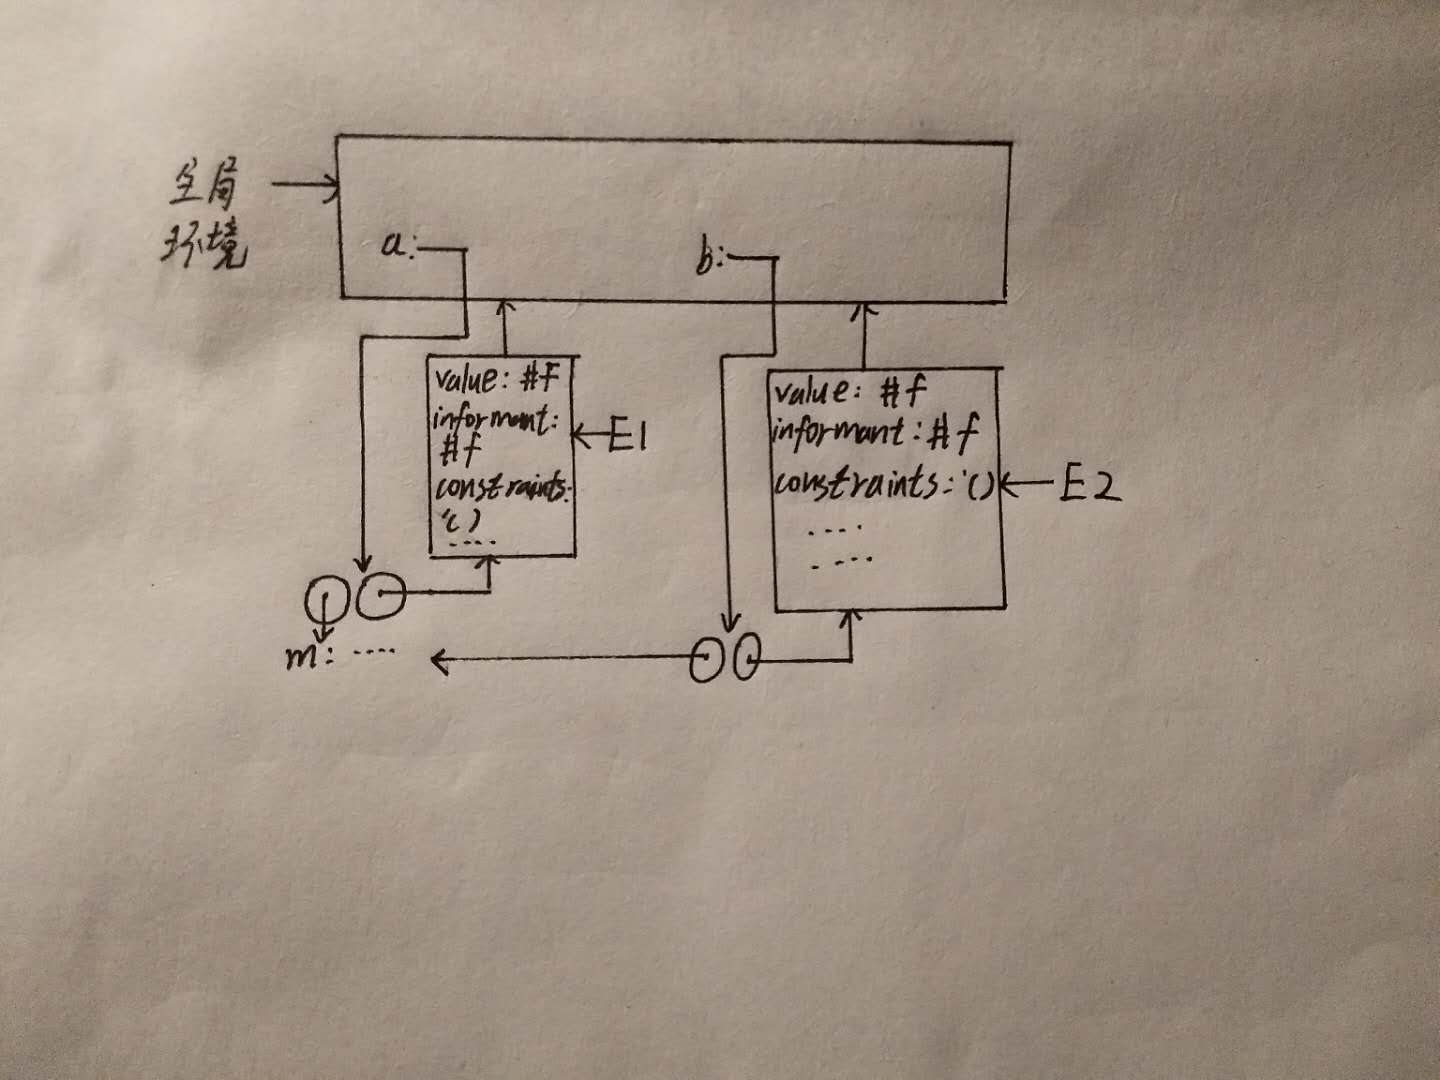 全局
环境
a:
b:
value: #f
informant:
#f
constraints:
'()
.....
E1
value: #f
informant: #f
constraints: '()
....
....
E2
m: ....